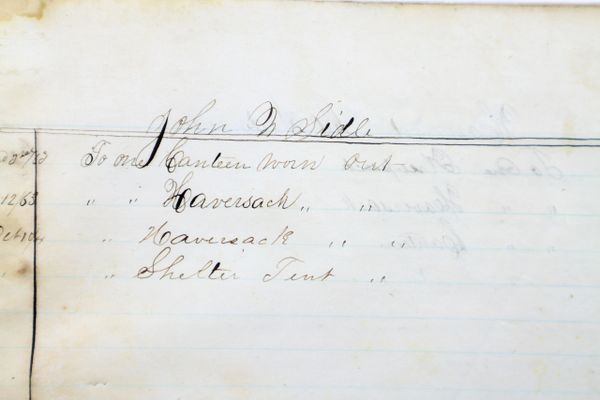 John N Sidle
To one Canteen worn out
12, 63 „ „ Haversack „ „
Oct 10 „ Haversack „ „
„ „ Shelter Tent „